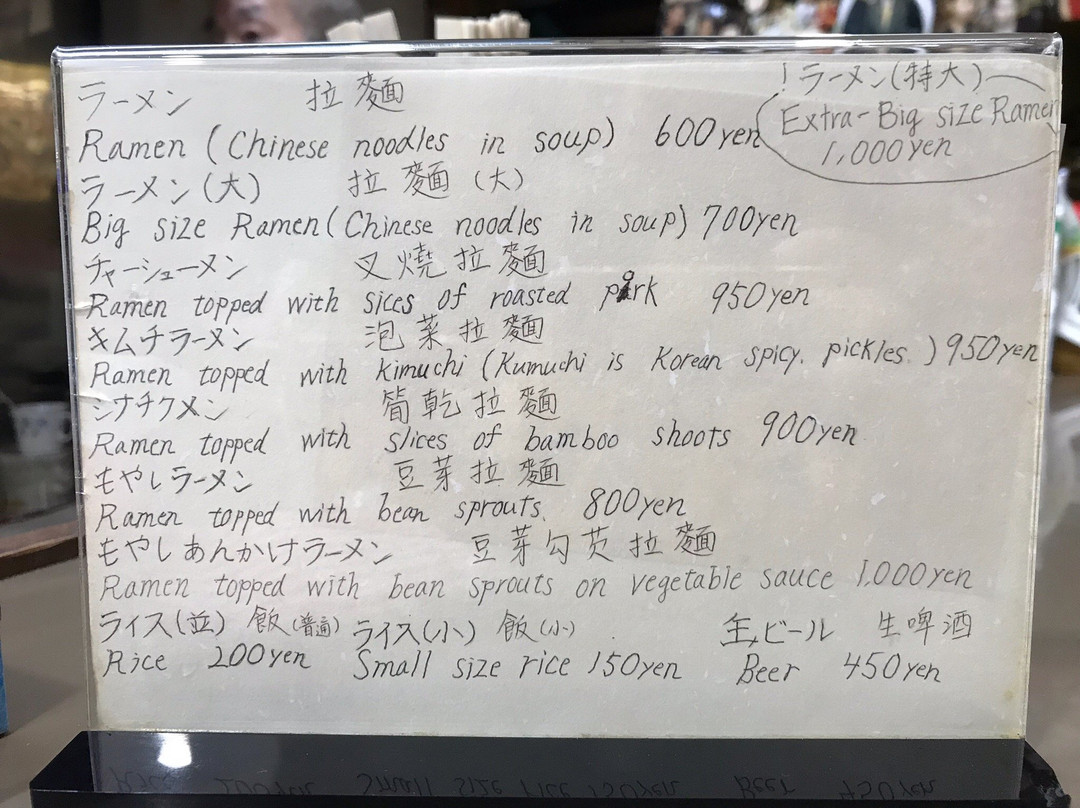 ラーメン 拉麵
Ramen (Chinese noodles in soup) 600yen
! ラーメン(特大)
Extra-Big size Ramen
1,000yen
ラーメン(大) 拉麵(大)
Big size Ramen (Chinese noodles in soup) 700yen
チャーシューメン 叉燒拉麵
Ramen topped with sices of roasted pork 950yen
キムチラーメン 泡菜拉麵
Ramen topped with kimuchi (Kumuchi is Korean spicy. pickles.) 950yen
シナチクメン 筍乾拉麵
Ramen topped with slices of bamboo shoots 900yen
もやしラーメン 豆芽拉麵
Ramen topped with bean sprouts. 800yen
もやしあんかけラーメン 豆芽勾芡拉麵
Ramen topped with bean sprouts on vegetable sauce 1,000yen
ライス(並) 飯(普遍) ライス(小) 飯(小) 生ビール 生啤酒
Rice 200yen Small size rice 150yen Beer 450yen